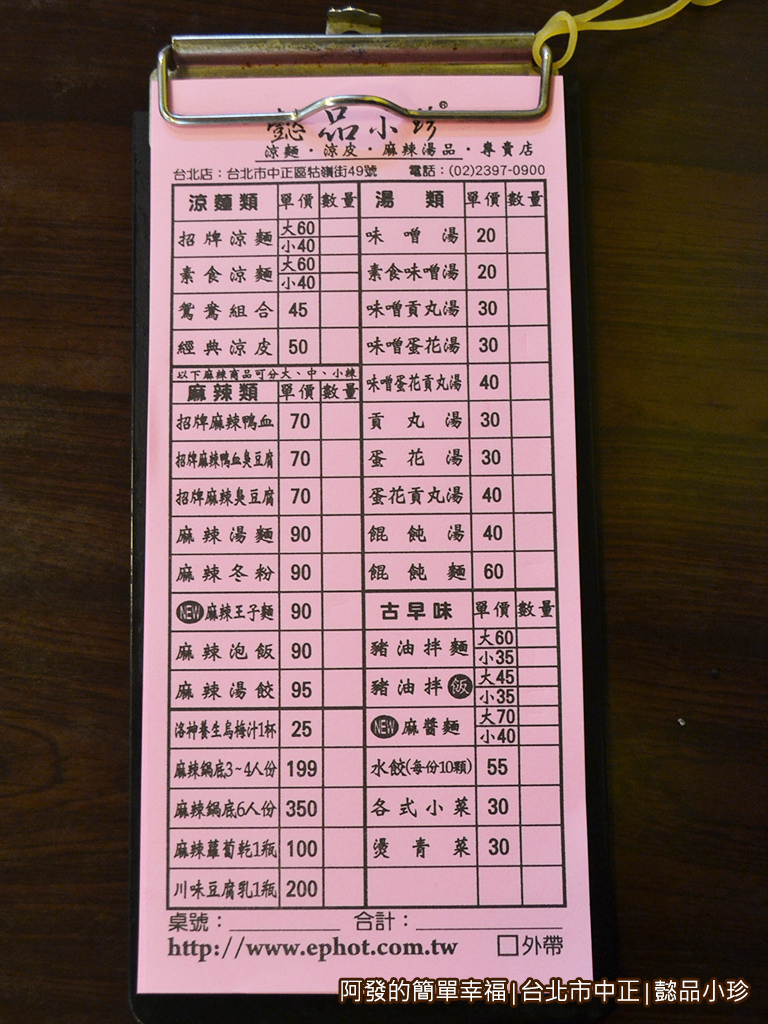 懿品小珍®
涼麵・涼皮・麻辣湯品・專賣店
台北店：台北市中正區牯嶺街49號 電話：(02)2397-0900
涼麵類 單價 數量
招牌涼麵 大60 小40
素食涼麵 大60 小40
鴛鴦組合 45
經典涼皮 50
以下麻辣商品可分大、中、小辣
麻辣類 單價 數量
招牌麻辣鴨血 70
招牌麻辣鴨血臭豆腐 70
招牌麻辣臭豆腐 70
麻辣湯麵 90
麻辣冬粉 90
NEW 麻辣王子麵 90
麻辣泡飯 90
麻辣湯餃 95
洛神養生烏梅汁1杯 25
麻辣鍋底3~4人份 199
麻辣鍋底6人份 350
麻辣蘿蔔乾1瓶 100
川味豆腐乳1瓶 200
湯類 單價 數量
味噌湯 20
素食味噌湯 20
味噌貢丸湯 30
味噌蛋花湯 30
味噌蛋花貢丸湯 40
貢丸湯 30
蛋花湯 30
蛋花貢丸湯 40
餛飩湯 40
餛飩麵 60
古早味 單價 數量
豬油拌麵 大60 小35
豬油拌飯 大45 小35
NEW 麻醬麵 大70 小40
水餃(每份10顆) 55
各式小菜 30
燙青菜 30
桌號：＿＿＿＿ 合計：＿＿＿＿
http://www.ephot.com.tw □外帶
阿發的簡單幸福|台北市中正|懿品小珍